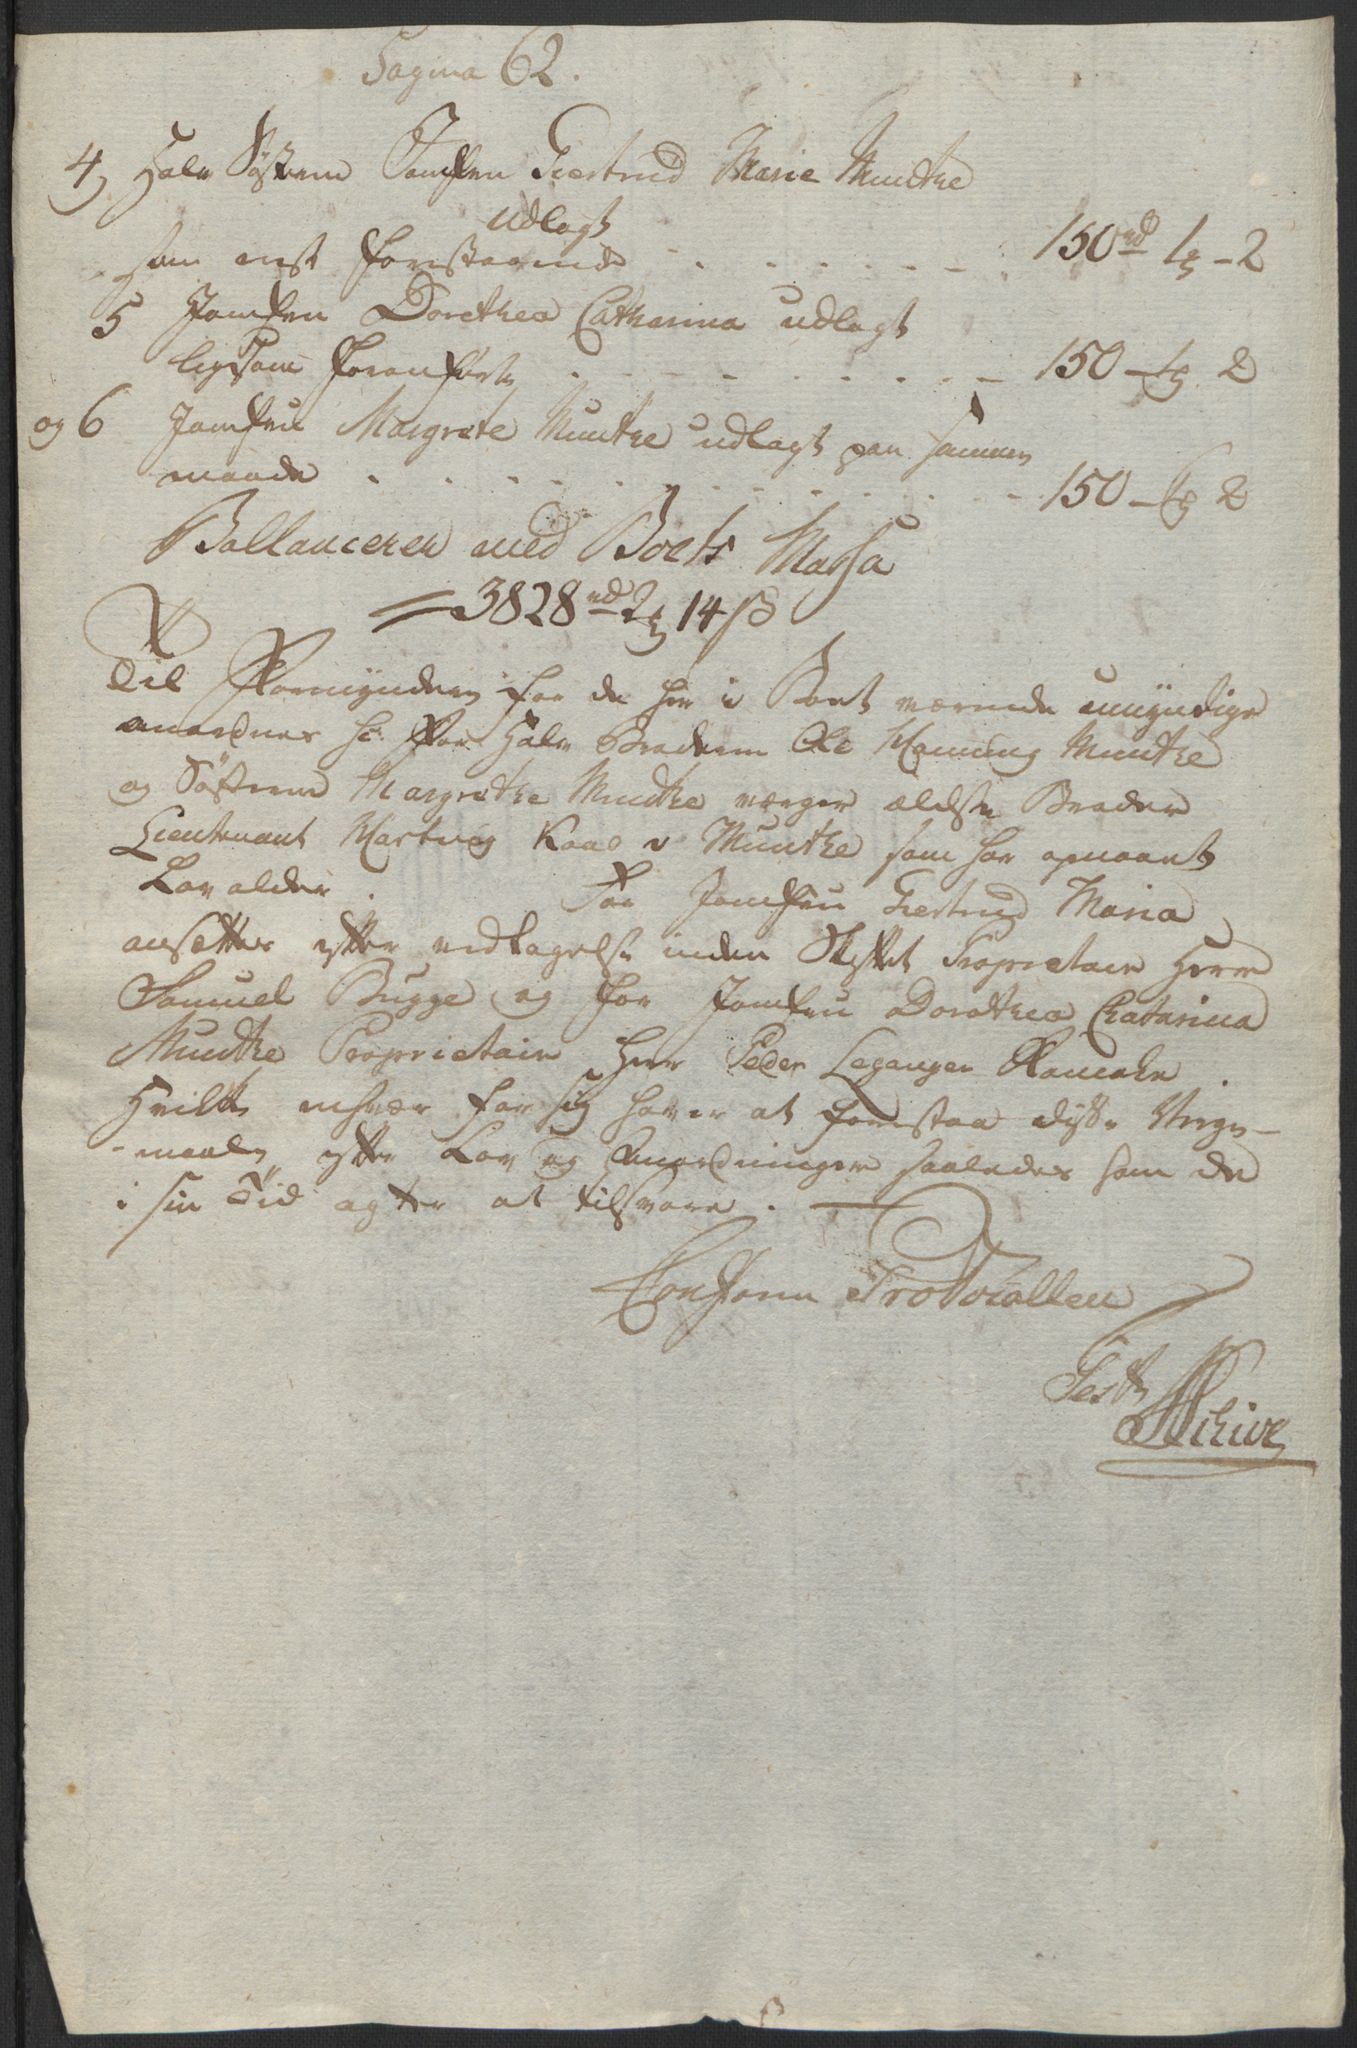 Pagina 62.
4) Halv Søsteren Jomfru Giertrud Marie Munthe
udlagt
som næst forestaaende - - - - - 150 rd 1 ƶ - 2
5 Jomfru Dorethea Catharina udlagt
ligesom foranførte - - - - - - - - 150 - 1 ƶ 2
og 6 Jomfru Margrete Munthe udlagt paa samme
maade - - - - - - - - - - - 150 - 1 ƶ 2
Ballancerer med Boets Massa
= 3828 rd 2 ƶ 14 ß
Til Formyndere for de her i Boet værende umyndige
anordnes sc: for Halv Broderen Ole Hanning Munthe
og Søsteren Margrethe Munthe værger ældste Broder
Lieutenant Hartvig Kaas v Munthe som har opnaaet
Lav alder. For Jomfru Giertrud Maria
ansættes efter vedtagelse inden Skiftet Proprietair Herr
Samuel Bugge og for Jomfru Dorothea Chatarina
Munthe Proprietair Herr Peder Leganger
Hvilke enhver for sig haver at forestaa disse Verge-
-maale efter Lov og Anordninger saaledes som de
i sin Tid agter at tilsvare. —
Conform Protocollen
Test